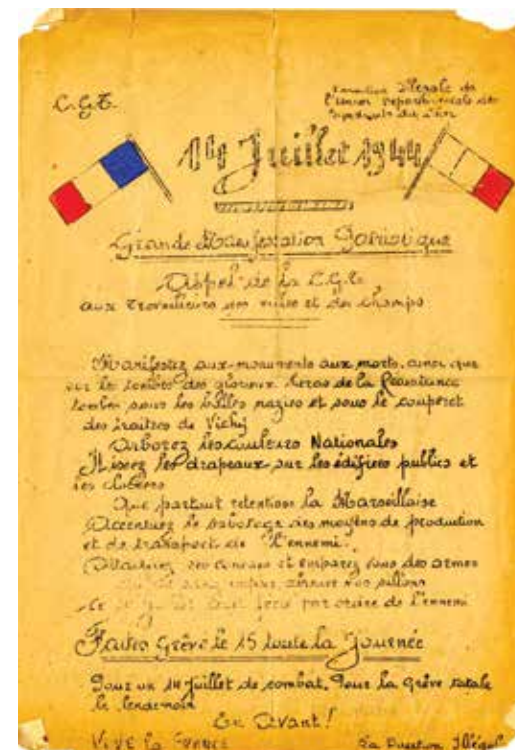 C.G.T.
Direction Illégale de
l'Union Départementale des
Syndicats du
14 Juillet 1944
Grande Manifestation Patriotique
Appel de la C.G.T.
aux Travailleurs des villes et des champs
Manifestez aux monuments aux morts, ainsi que
sur les tombes des glorieux héros de la Résistance
tombés sous les balles nazies et sous le couperet
des traîtres de Vichy
Arborez les couleurs Nationales
Hissez les drapeaux sur les édifices publics et
les clochers
Que partout retentisse la Marseillaise
Accentuez le sabotage des moyens de production
et de transport de l'ennemi.
des armes
sang impur abreuve nos sillons
par ordre de l'ennemi
Faites Grève le 15 toute la Journée
Pour un 14 Juillet de combat, Pour la grève totale
le lendemain
En Avant!
VIVE la France
La Direction Illégale